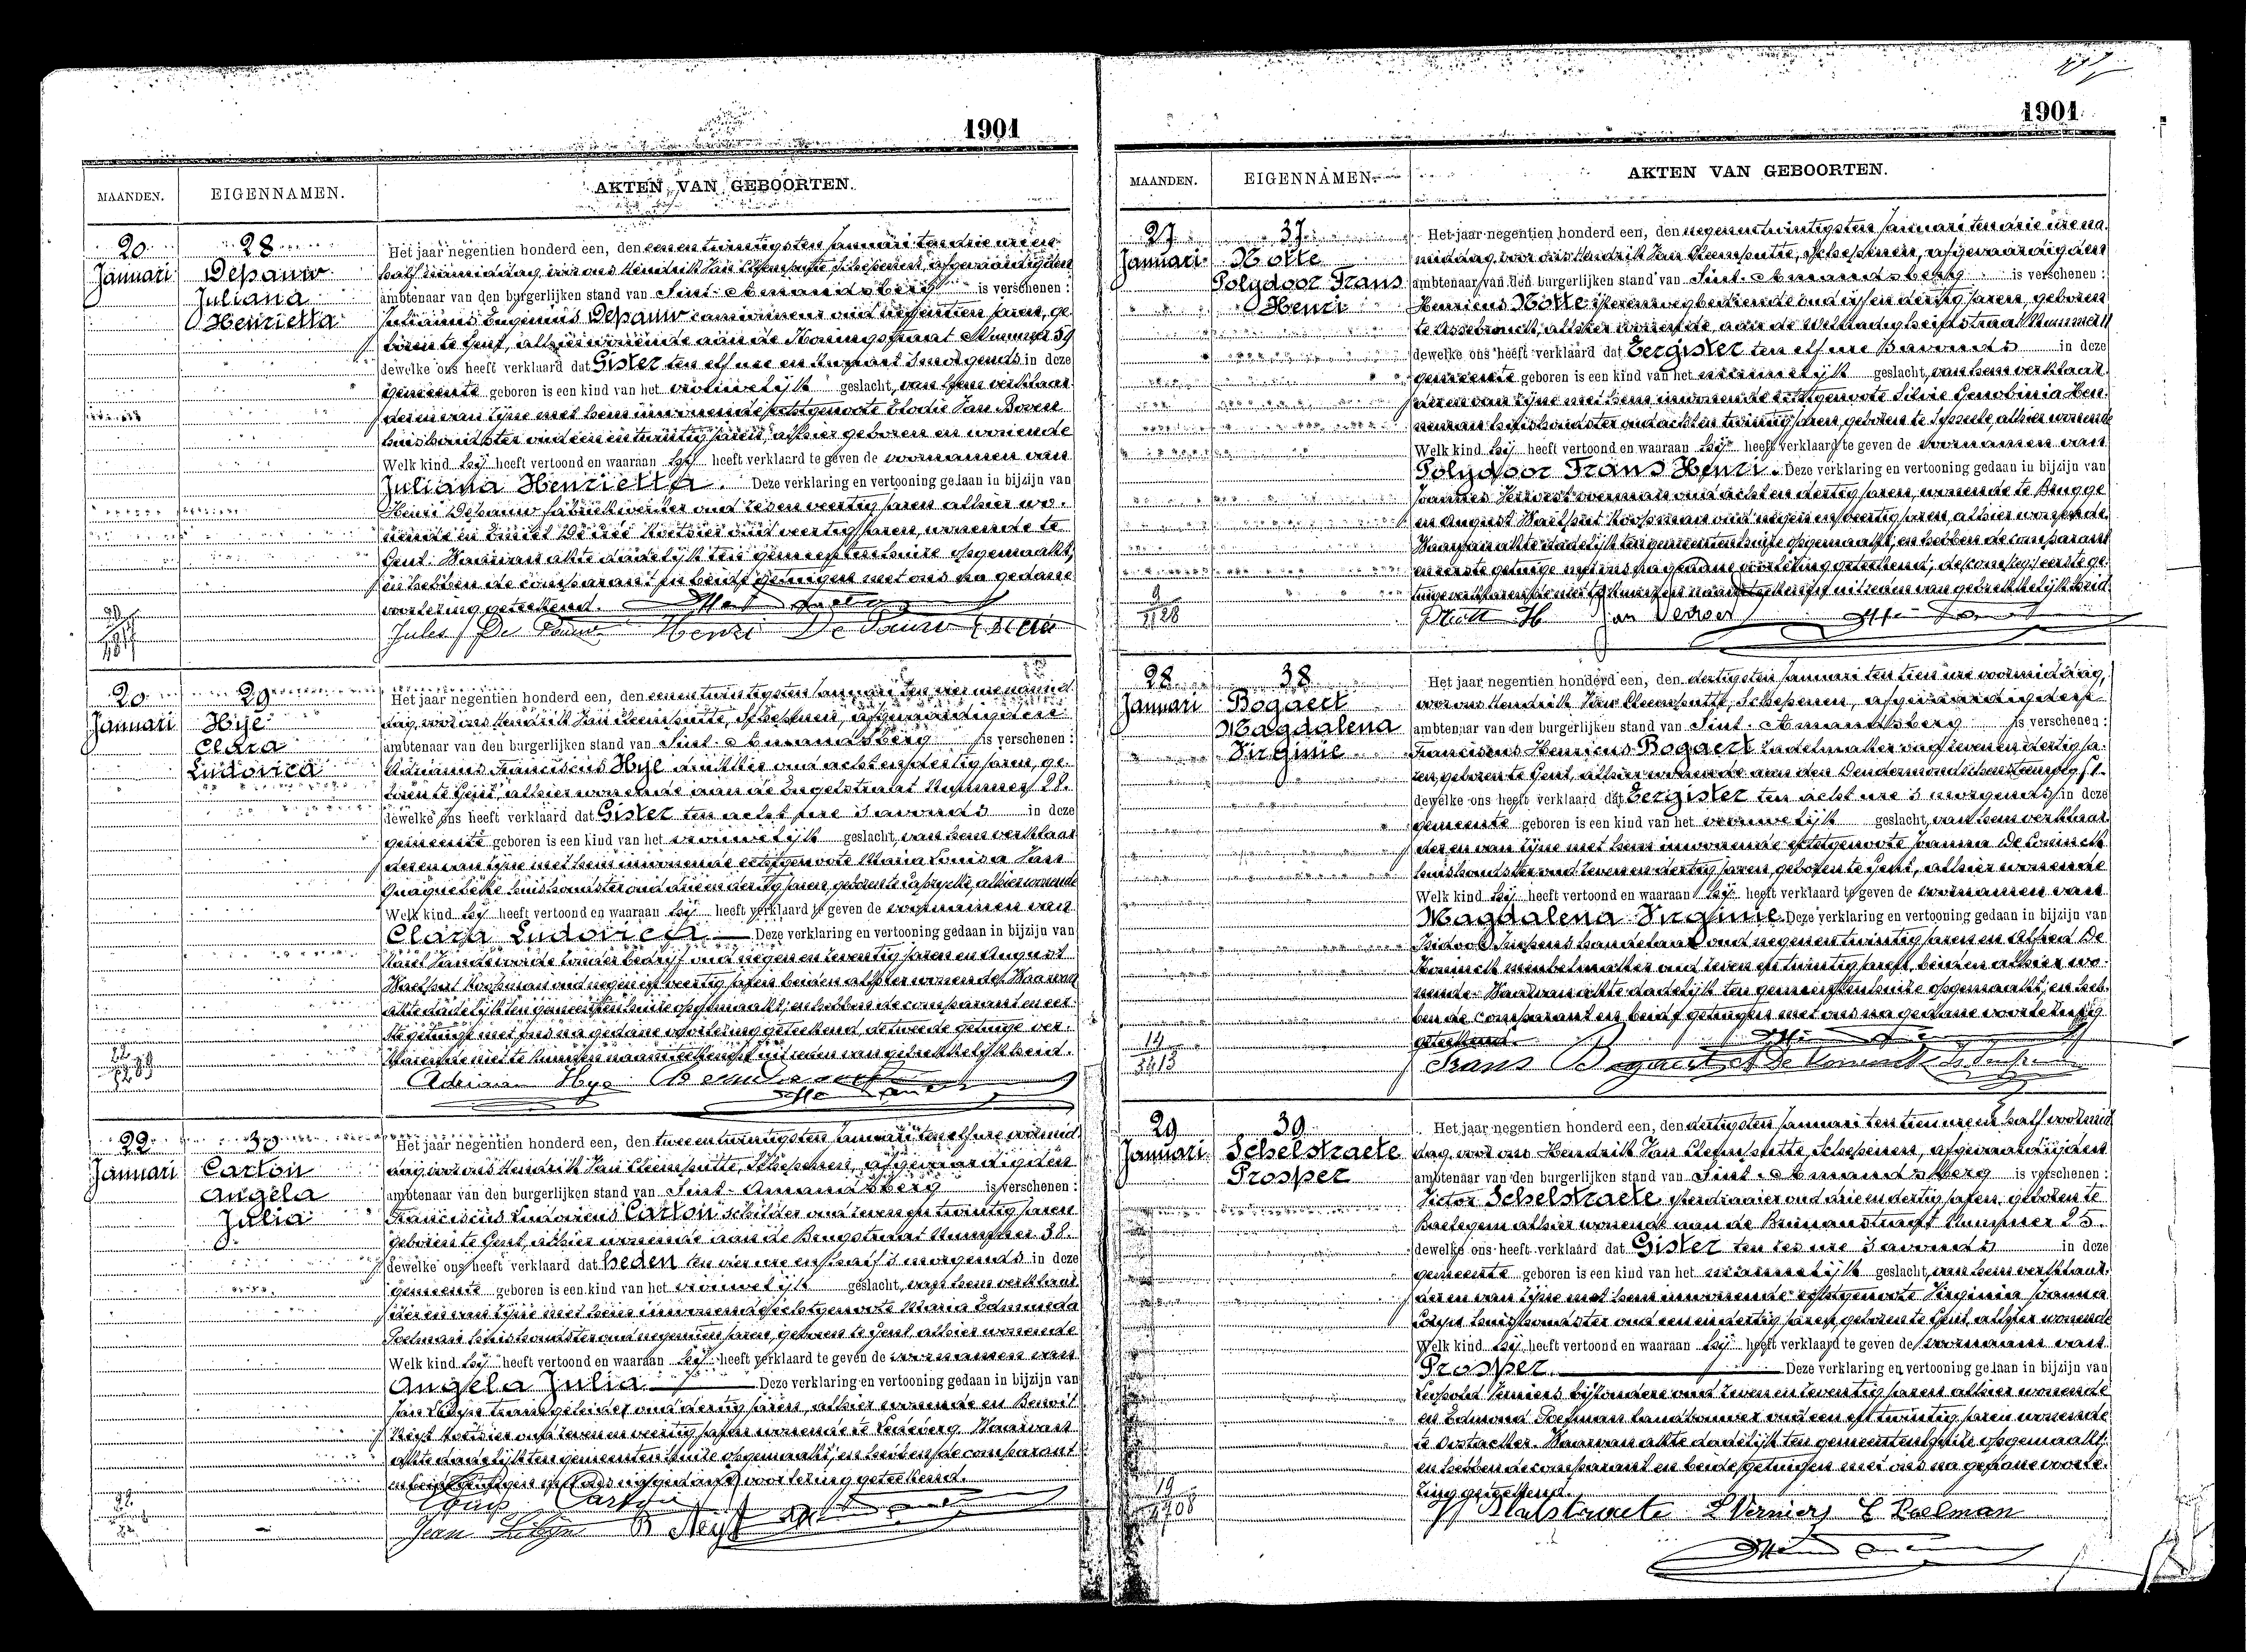 1901
MAANDEN. EIGENNAMEN. AKTEN VAN GEBOORTEN.
20 Januari
28
Depauw
Juliana
Henrietta
Het jaar negentien honderd een, den een en twintigsten Januari ten drie uren
half namiddag, voor ons Hendrik Van Cleemputte, Schepenen, afgevaardigden
ambtenaar van den burgerlijken stand van Sint-Amandsberg is verschenen:
Julianus Eugenius Depauw camioneur oud negentien jaren, ge-
boren te Gent, alhier wonende aan de Koningstraat Nummer 59
dewelke ons heeft verklaard dat Gister ten elf ure en kwaart 's morgends in deze
gemeente geboren is een kind van het vrouwelijk geslacht, van hem verklaar-
der en van zijne met hem inwonende echtgenoote Elodie Van Boven
huishoudster oud een en twintig jaren, alhier geboren en wonende
Welk kind hij heeft vertoond en waaraan hij heeft verklaard te geven de voornamen van
Juliana Henrietta. Deze verklaring en vertooning gedaan in bijzijn van
Henri Depauw fabriekwerker oud zeven veertig jaren alhier wo-
nende en Emiel koetsier oud veertig jaren, wonende te
Gent. Waarvan akte dadelijk ten gemeentenhuize opgemaakt,
en hebben de comparant en beide getuigen met ons na gedane
voorlezing geteekend.
Jules De Pauw Henri De Pauw
20 Januari
29
Hye
Clara
Ludovica
Het jaar negentien honderd een, den een en twintigsten Januari ten vier ure namid-
dag, voor ons Hendrik Van Cleemputte, Schepenen, afgevaardigden
ambtenaar van den burgerlijken stand van Sint-Amandsberg is verschenen:
Adrianus Franciscus Hye oud acht en dertig jaren, ge-
boren te Gent, alhier wonende aan de Engelstraat Nummer 28.
dewelke ons heeft verklaard dat Gister ten acht ure 's avonds in deze
gemeente geboren is een kind van het vrouwelijk geslacht, van hem verklaar-
der en van zijne met hem inwonende echtgenoote Maria Louisa Van
Quaquebeke huishoudster oud drie en dertig jaren, geboren te Caprycke, alhier wonende
Welk kind hij heeft vertoond en waaraan hij heeft verklaard te geven de voornamen van
Clara Ludovica Deze verklaring en vertooning gedaan in bijzijn van
Karel Vandewoude zonder bedrijf oud negen en zeventig jaren en August
Waelput koopman oud negen en veertig jaren beiden alhier wonende. Waarvan
akte dadelijk ten gemeentenhuize opgemaakt, en hebben de comparant en eer-
ste getuige met ons na gedane voorlezing geteekend, de tweede getuige ver-
klarende niet te kunnen naamteekenen uit reden van gebrekkelijkheid.
Adriaan Hye
22 Januari
30
Carton
Angela
Julia
Het jaar negentien honderd een, den twee en twintigsten Januari ten elf ure voormid-
dag voor ons Hendrik Van Cleemputte, Schepenen, afgevaardigden
ambtenaar van den burgerlijken stand van Sint-Amandsberg is verschenen:
Franciscus Ludovicus Carton schilder oud zeven en twintig jaren
geboren te Gent, alhier wonende aan de Brugstraat Nummer 38.
dewelke ons heeft verklaard dat heden ten vier ure en half 's morgends in deze
gemeente geboren is een kind van het vrouwelijk geslacht, van hem verklaar-
der en van zijne met hem inwonende echtgenoote Maria Edmunda
Poelman huishoudster oud negentien jaren, geboren te Gent alhier wonende
Welk kind hij heeft vertoond en waaraan hij heeft verklaard te geven de voornamen van
Angela Julia Deze verklaring en vertooning gedaan in bijzijn van
Jan tramgeleider oud dertig jaren, alhier wonende en Benoit
Neyt koetsier oud zeven en veertig jaren wonende te Ledeberg. Waarvan
akte dadelijk ten gemeentenhuize opgemaakt, en hebben de comparant
en beide getuigen met ons na gedane voorlezing geteekend.
Louis Carton
Jean B Neyt
1901
MAANDEN. EIGENNAMEN. AKTEN VAN GEBOORTEN.
27 Januari
37
Notte
Polydoor Frans
Henri
Het jaar negentien honderd een, den negen en twintigsten Januari ten drie ure na-
middag, voor ons Hendrik Van Cleemputte, Schepenen, afgevaardigden
ambtenaar van den burgerlijken stand van Sint-Amandsberg is verschenen:
Henricus Notte ijzerenwegbediende oud vijf en dertig jaren, geboren
te Assebrouck, alhier wonende, aan de Weldadigheidstraat Nummer 11
dewelke ons heeft verklaard dat Eergister ten elf ure 's avonds in deze
gemeente geboren is een kind van het mannelijk geslacht, van hem verklaar-
der en van zijne met hem inwonende echtgenoote Silvie Genobinia Hen-
neman huishoudster oud acht en twintig jaren, geboren te Sysseele alhier wonende
Welk kind hij heeft vertoond en waaraan hij heeft verklaard te geven de voornamen van
Polydoor Frans Henri. Deze verklaring en vertooning gedaan in bijzijn van
Joannes Vervoort voerman oud acht en dertig jaren, wonende te Brugge
en August Waelput koopman oud negen en veertig jaren, alhier wonende.
Waarvan akte dadelijk ten gemeentenhuize opgemaakt, en hebben de comparant
en eerste getuige met ons na gedane voorlezing geteekend, de
9
1128
28 Januari
38
Bogaert
Magdalena
Virginie
Het jaar negentien honderd een, den dertigsten Januari ten tien ure voormiddag,
voor ons Hendrik Van Cleemputte, Schepenen, afgevaardigden
ambtenaar van den burgerlijken stand van Sint-Amandsberg is verschenen:
Franciscus Henricus Bogaert zadelmaker oud zeven en dertig ja-
ren, geboren te Gent, alhier wonende aan den Dendermondschensteenweg
dewelke ons heeft verklaard dat Eergister ten acht ure 's morgends in deze
gemeente geboren is een kind van het vrouwelijk geslacht, van hem verklaar-
der en van zijne met hem inwonende echtgenoote Joanna De Coninck
huishoudster oud zeven en dertig jaren, geboren te Gent, alhier wonende
Welk kind hij heeft vertoond en waaraan hij heeft verklaard te geven de voornamen van
Magdalena Virginie. Deze verklaring en vertooning gedaan in bijzijn van
Isidoor handelaar oud negen en twintig jaren en Alfred De
Koninck meubelmaker oud zeven en twintig jaren, beiden alhier wo-
nende. Waarvan akte dadelijk ten gemeentenhuize opgemaakt, en heb-
ben de comparant en beide getuigen met ons na gedane voorlezing
geteekend.
Frans Bogaert
29 Januari
39
Schelstraete
Prosper
Het jaar negentien honderd een, den dertigsten Januari ten tien ure en half voormid-
dag, voor ons Hendrik Van Cleemputte Schepenen, afgevaardigden
ambtenaar van den burgerlijken stand van Sint-Amandsberg is verschenen:
Victor Schelstraete oud drie en dertig jaren, geboren te
Baelegem alhier wonende aan de Nummer 25.
dewelke ons heeft verklaard dat Gister ten zes ure 's avonds in deze
gemeente geboren is een kind van het mannelijk geslacht, van hem verklaar-
der en van zijne met hem inwonende echtgenoote Virginia Joanna
huishoudster oud een en dertig jaren, geboren te Gent, alhier wonende
Welk kind hij heeft vertoond en waaraan hij heeft verklaard te geven de voornaam van
Prosper Deze verklaring en vertooning gedaan in bijzijn van
Leopold Verniers bijzondere oud zeven en zeventig jaren alhier wonende
en Edmond Poelman landbouwer oud een en twintig jaren wonende
te Oostacker. Waarvan akte dadelijk ten gemeentenhuize opgemaakt
en hebben de comparant en beide getuigen met ons na gedane voorle-
zing geteekend.
L Verniers E Poelman